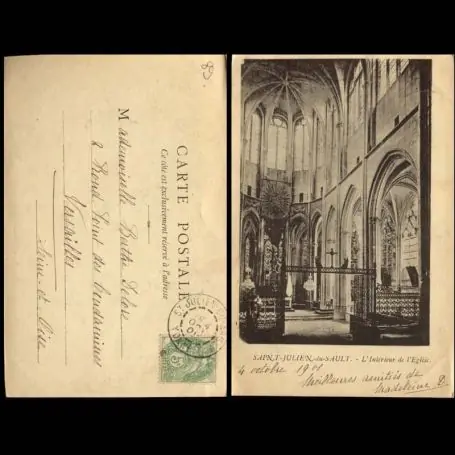 89
CARTE POSTALE
Ce côté est exclusivement réservé à l'adresse
Mademoiselle Berthe
2 Rond Point des
Versailles
Seine-et-Oise
ST JULIEN
SAINT-JULIEN-du-SAULT. - L'Intérieur de l'Eglise.
4 octobre 1901
Meilleures amitiés de
Madeleine D.